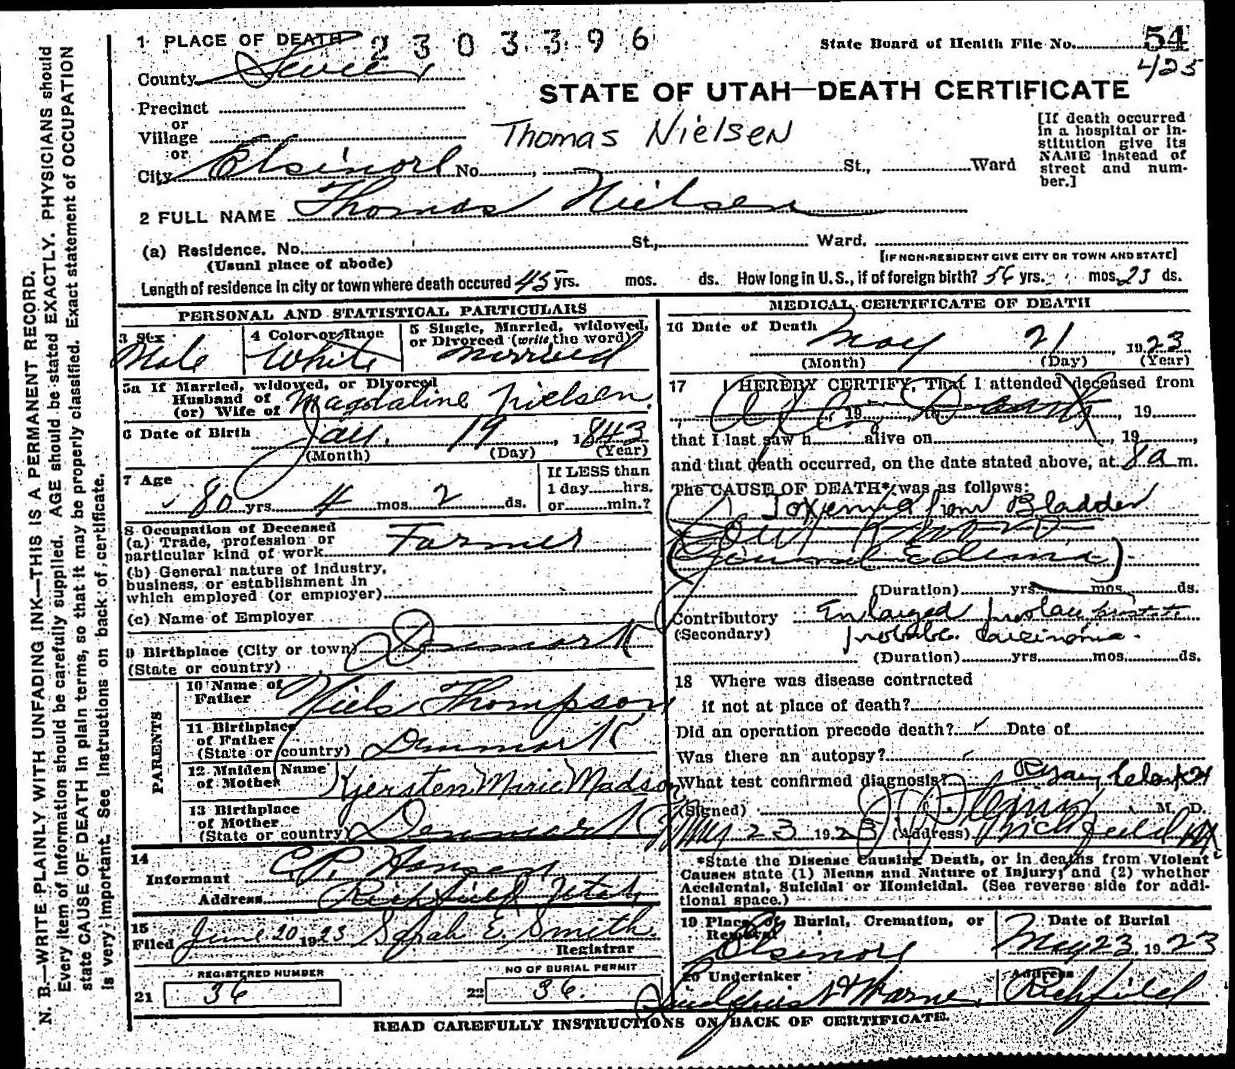 1 PLACE OF DEATH 2303396
State Board of Health File No. 54
425
County Sevier
STATE OF UTAH—DEATH CERTIFICATE
Precinct
or
Village
Thomas Nielsen
or
City Elsinore No. St., Ward
[If death occurred in a hospital or institution give its NAME instead of street and number.]
2 FULL NAME Thomas Nielsen
(a) Residence. No. St., Ward.
(Usual place of abode)
[IF NON-RESIDENT GIVE CITY OR TOWN AND STATE]
Length of residence in city or town where death occured 45 yrs. mos. ds. How long in U.S., if of foreign birth? 56 yrs. mos. 23 ds.
PERSONAL AND STATISTICAL PARTICULARS
3 Sex Male
4 Color or Race White
5 Single, Married, widowed, or Divorced (write the word) Married
5a If Married, widowed, or Divorced
Husband of
(or) Wife of Magdaline Nielsen
6 Date of Birth Jan. 19, 1843
(Month) (Day) (Year)
7 Age 80 yrs 4 mos 2 ds.
If LESS than
1 day hrs.
or min.?
8 Occupation of Deceased
(a) Trade, profession or
particular kind of work Farmer
(b) General nature of industry,
business, or establishment in
which employed (or employer)
(c) Name of Employer
9 Birthplace (City or town) Denmark
(State or country)
PARENTS
10 Name of
Father Niels Thompson
11 Birthplace
of Father
(State or country) Denmark
12 Maiden Name
of Mother Kjersten Marie Madson
13 Birthplace
of Mother
(State or country) Denmark
14
Informant C.P. Hansen
Address Richfield Utah
15
Filed June 20 1923 Sarah E. Smith
Registrar
REGISTERED NUMBER
21 36
NO OF BURIAL PERMIT
22 36.
MEDICAL CERTIFICATE OF DEATH
16 Date of Death May 21, 1923
(Month) (Day) (Year)
17 I HEREBY CERTIFY, That I attended deceased from
After Death 19 to , 19
that I last saw h alive on , 19 ,
and that death occurred, on the date stated above, at 8 a m.
The CAUSE OF DEATH* was as follows:
Toxemia from Bladder
(General Edema)
(Duration) yrs mos. ds.
Contributory Enlarged prostate
(Secondary) probable carcinoma.
(Duration) yrs mos. ds.
18 Where was disease contracted
if not at place of death?
Did an operation precede death? Date of
Was there an autopsy?
What test confirmed diagnosis?
(Signed) M. D.
May 23 1923 (Address) Richfield
*State the Disease Causing Death, or in deaths from Violent
Causes state (1) Means and Nature of Injury; and (2) whether
Accidental, Suicidal or Homicidal. (See reverse side for addi-
tional space.)
19 Place of Burial, Cremation, or
Removal Elsinore
Date of Burial
May 23, 1923
20 Undertaker
Address
Richfield
READ CAREFULLY INSTRUCTIONS ON BACK OF CERTIFICATE.
N. B.—WRITE PLAINLY WITH UNFADING INK—THIS IS A PERMANENT RECORD.
Every item of information should be carefully supplied. AGE should be stated EXACTLY. PHYSICIANS should
state CAUSE OF DEATH in plain terms, so that it may be properly classified. Exact statement of OCCUPATION
is very important. See Instructions on back of certificate.